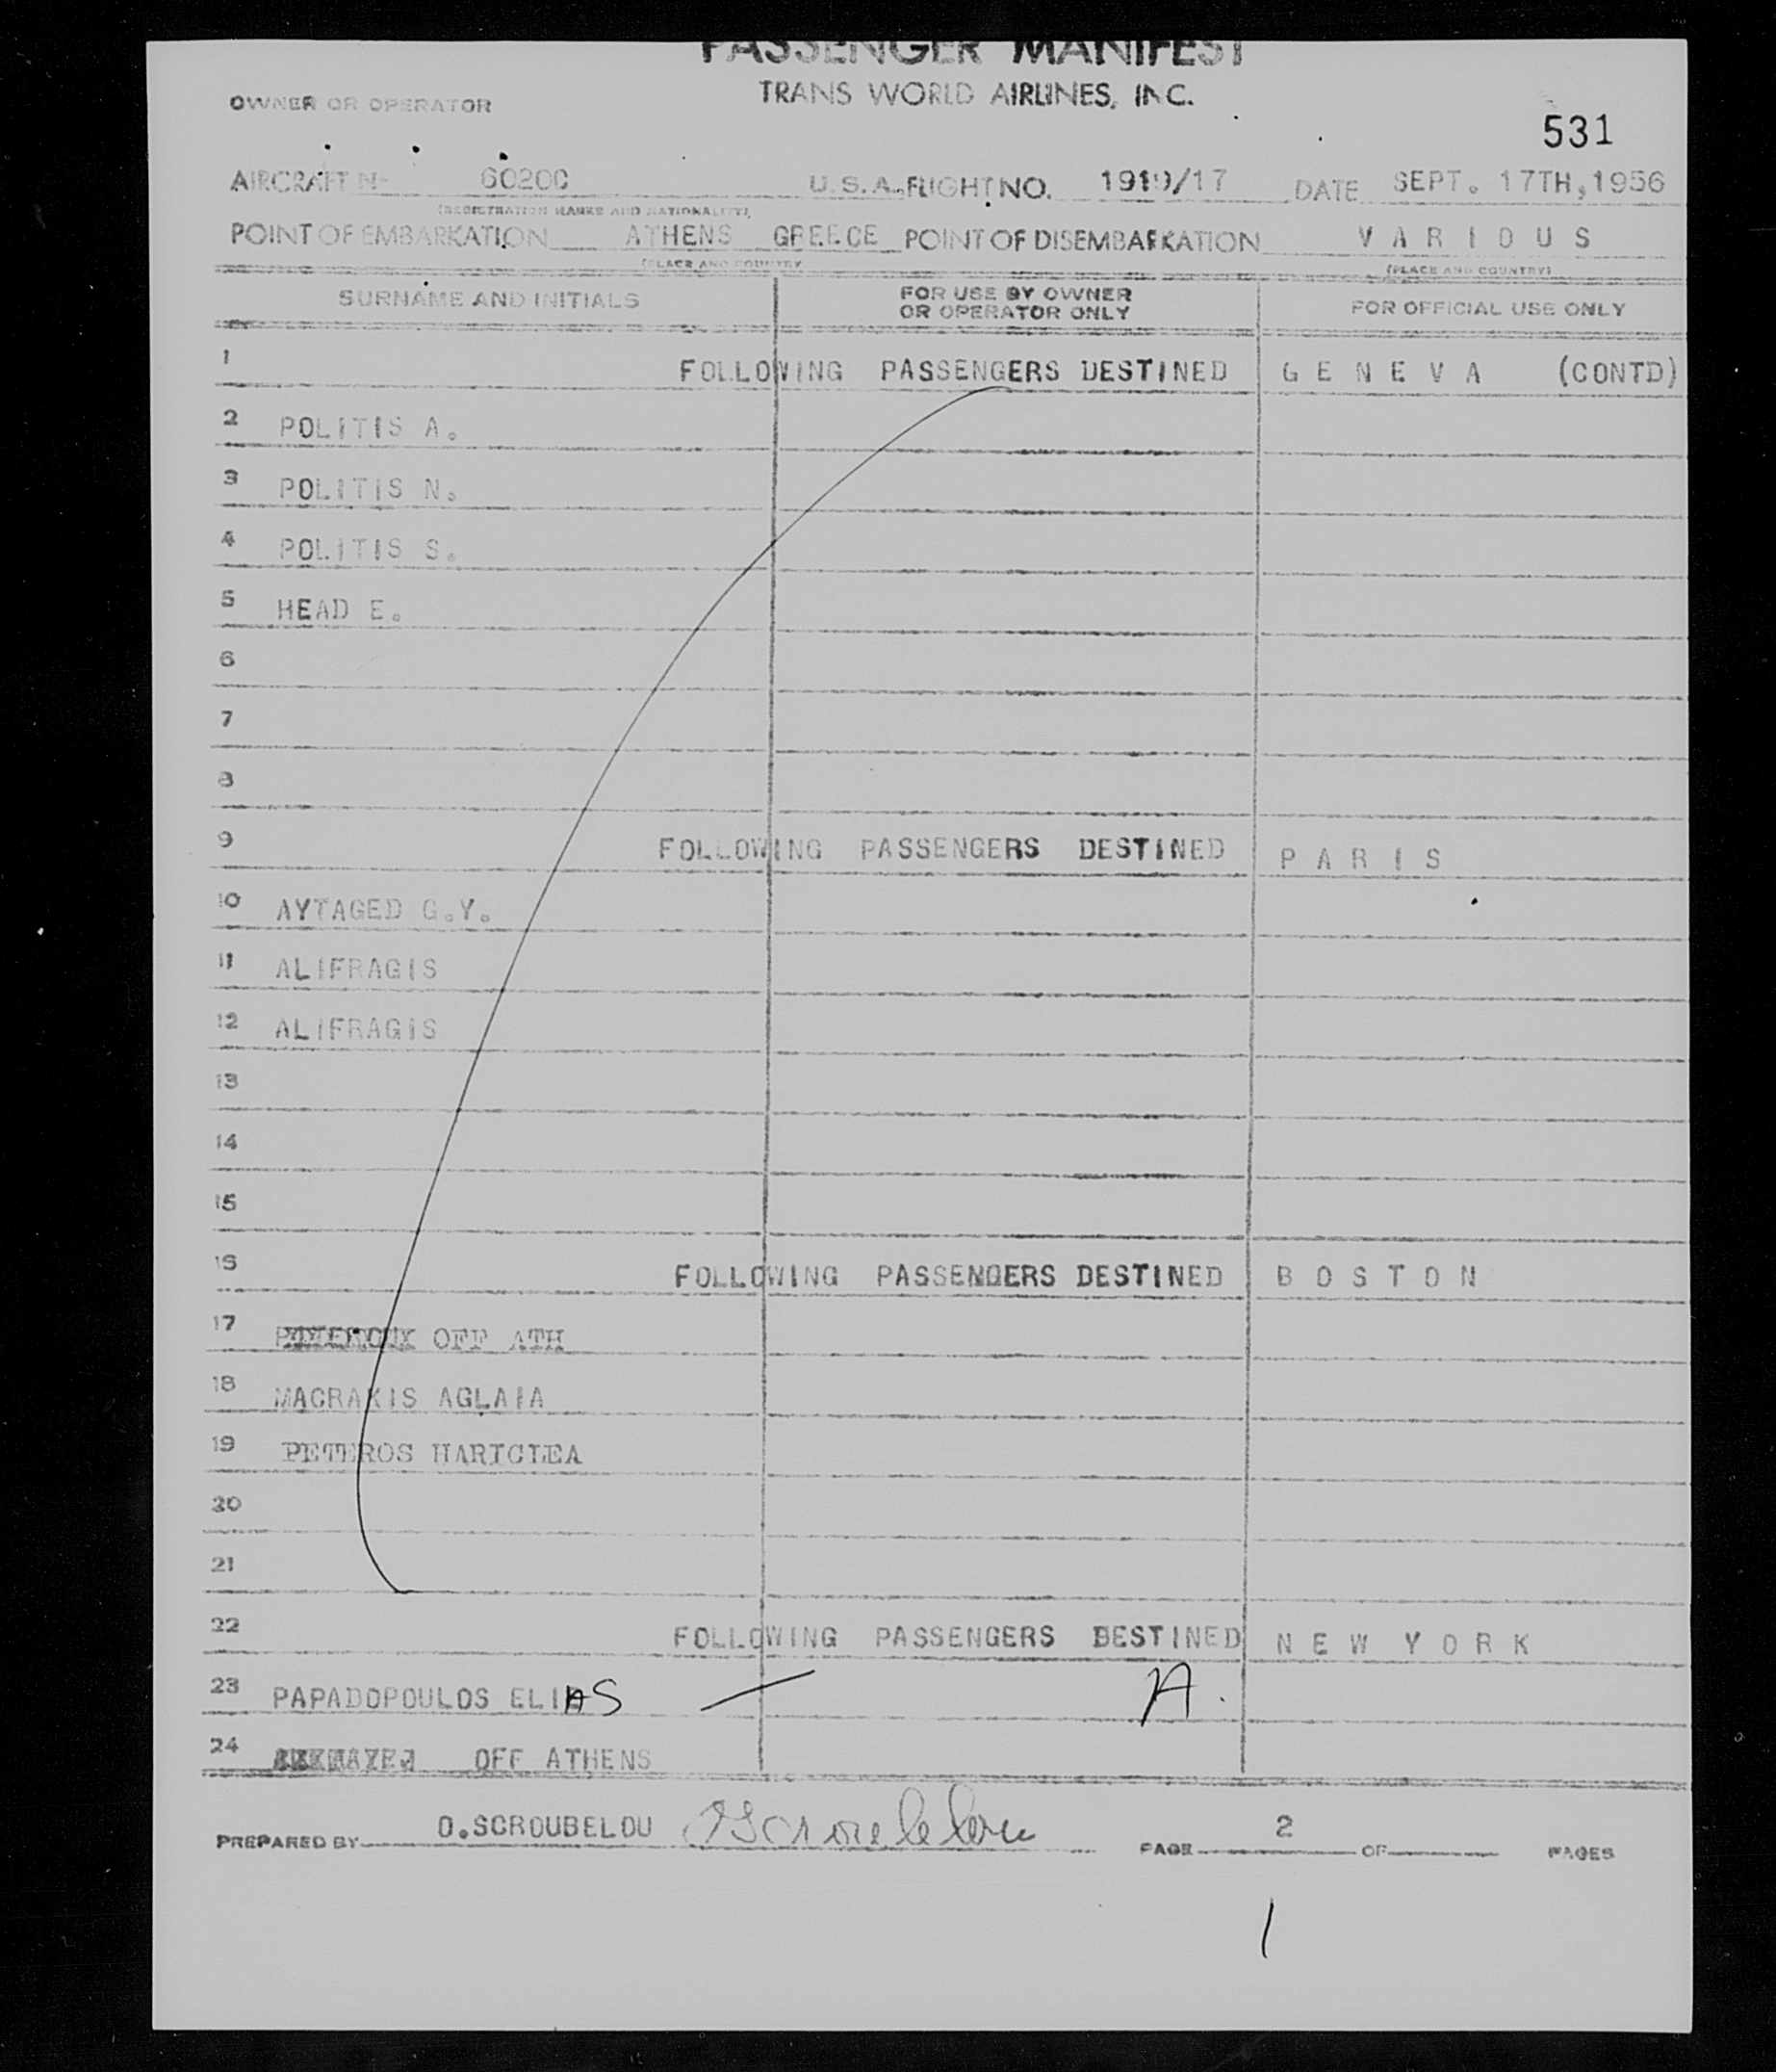 PASSENGER MANIFEST
TRANS WORLD AIRLINES, INC.
OWNER OR OPERATOR
531
AIRCRAFT Nº 6020C U.S.A. FLIGHT NO. 1919/17 DATE SEPT. 17TH, 1956
(REGISTRATION MARKS AND NATIONALITY)
POINT OF EMBARKATION ATHENS GREECE POINT OF DISEMBARKATION VARIOUS
(PLACE AND COUNTRY) (PLACE AND COUNTRY)
SURNAME AND INITIALS FOR USE BY OWNER OR OPERATOR ONLY FOR OFFICIAL USE ONLY
1 FOLLOWING PASSENGERS DESTINED GENEVA (CONTD)
2 POLITIS A.
3 POLITIS N.
4 POLITIS S.
5 HEAD E.
6
7
8
9 FOLLOWING PASSENGERS DESTINED PARIS
10 AYTAGED G.Y.
11 ALIFRAGIS
12 ALIFRAGIS
13
14
15
16 FOLLOWING PASSENGERS DESTINED BOSTON
17 OFF ATH
18 MACRAKIS AGLAIA
19 PETEROS HARICLEA
20
21
22 FOLLOWING PASSENGERS DESTINED NEW YORK
23 PAPADOPOULOS ELIAS — A.
24 OFF ATHENS
PREPARED BY O.SCROUBELOU OScroubelou PAGE 2 OF PAGES
1